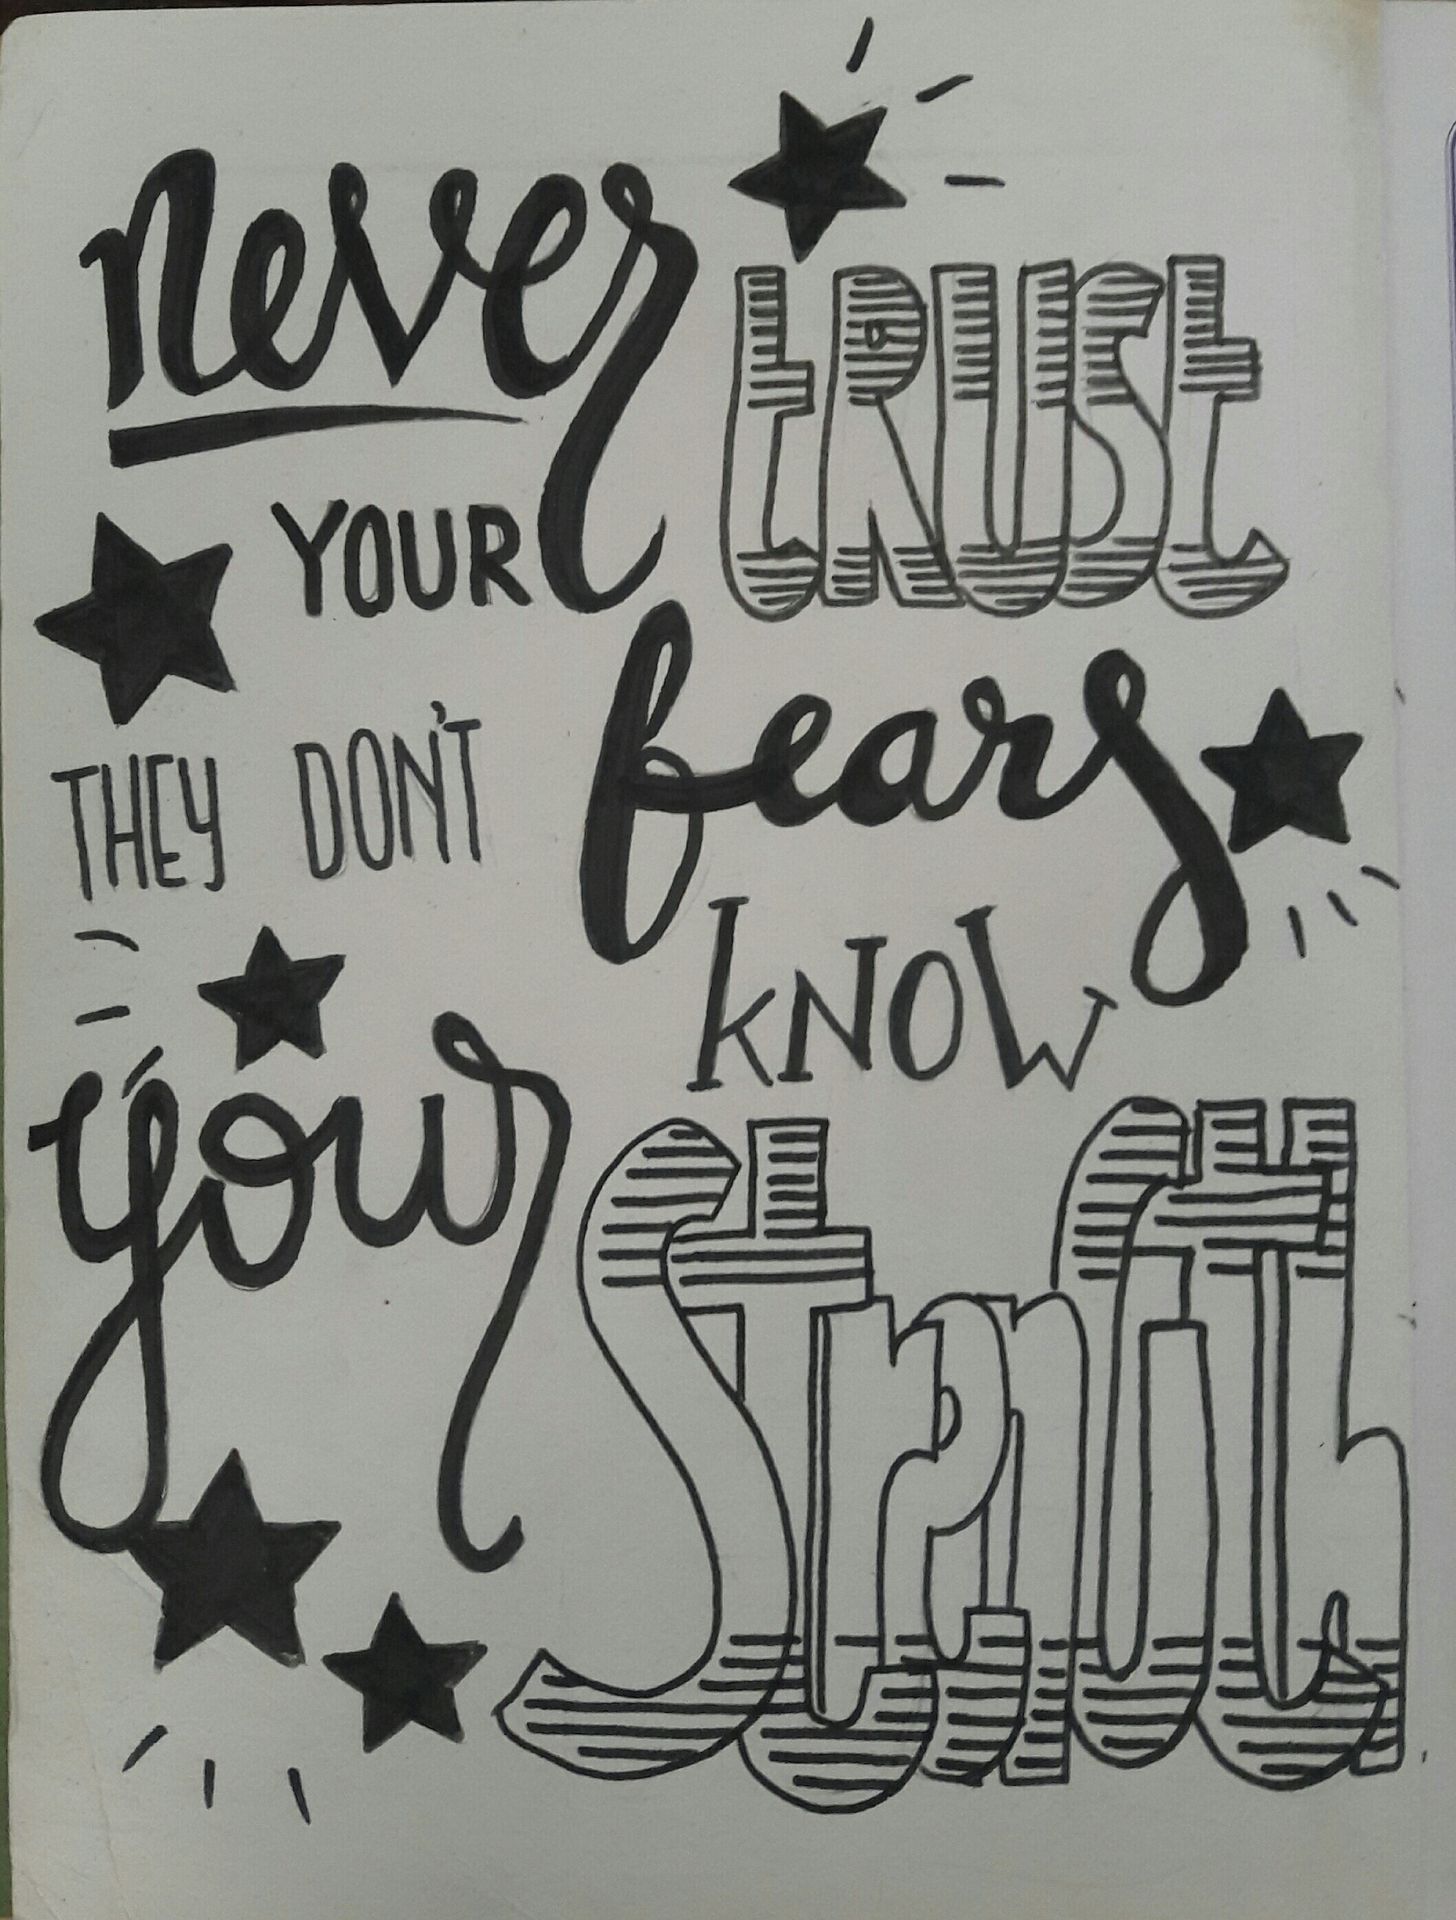 never tRUSt
YOUR fears
THEY DON'T
kNOW
your Strength